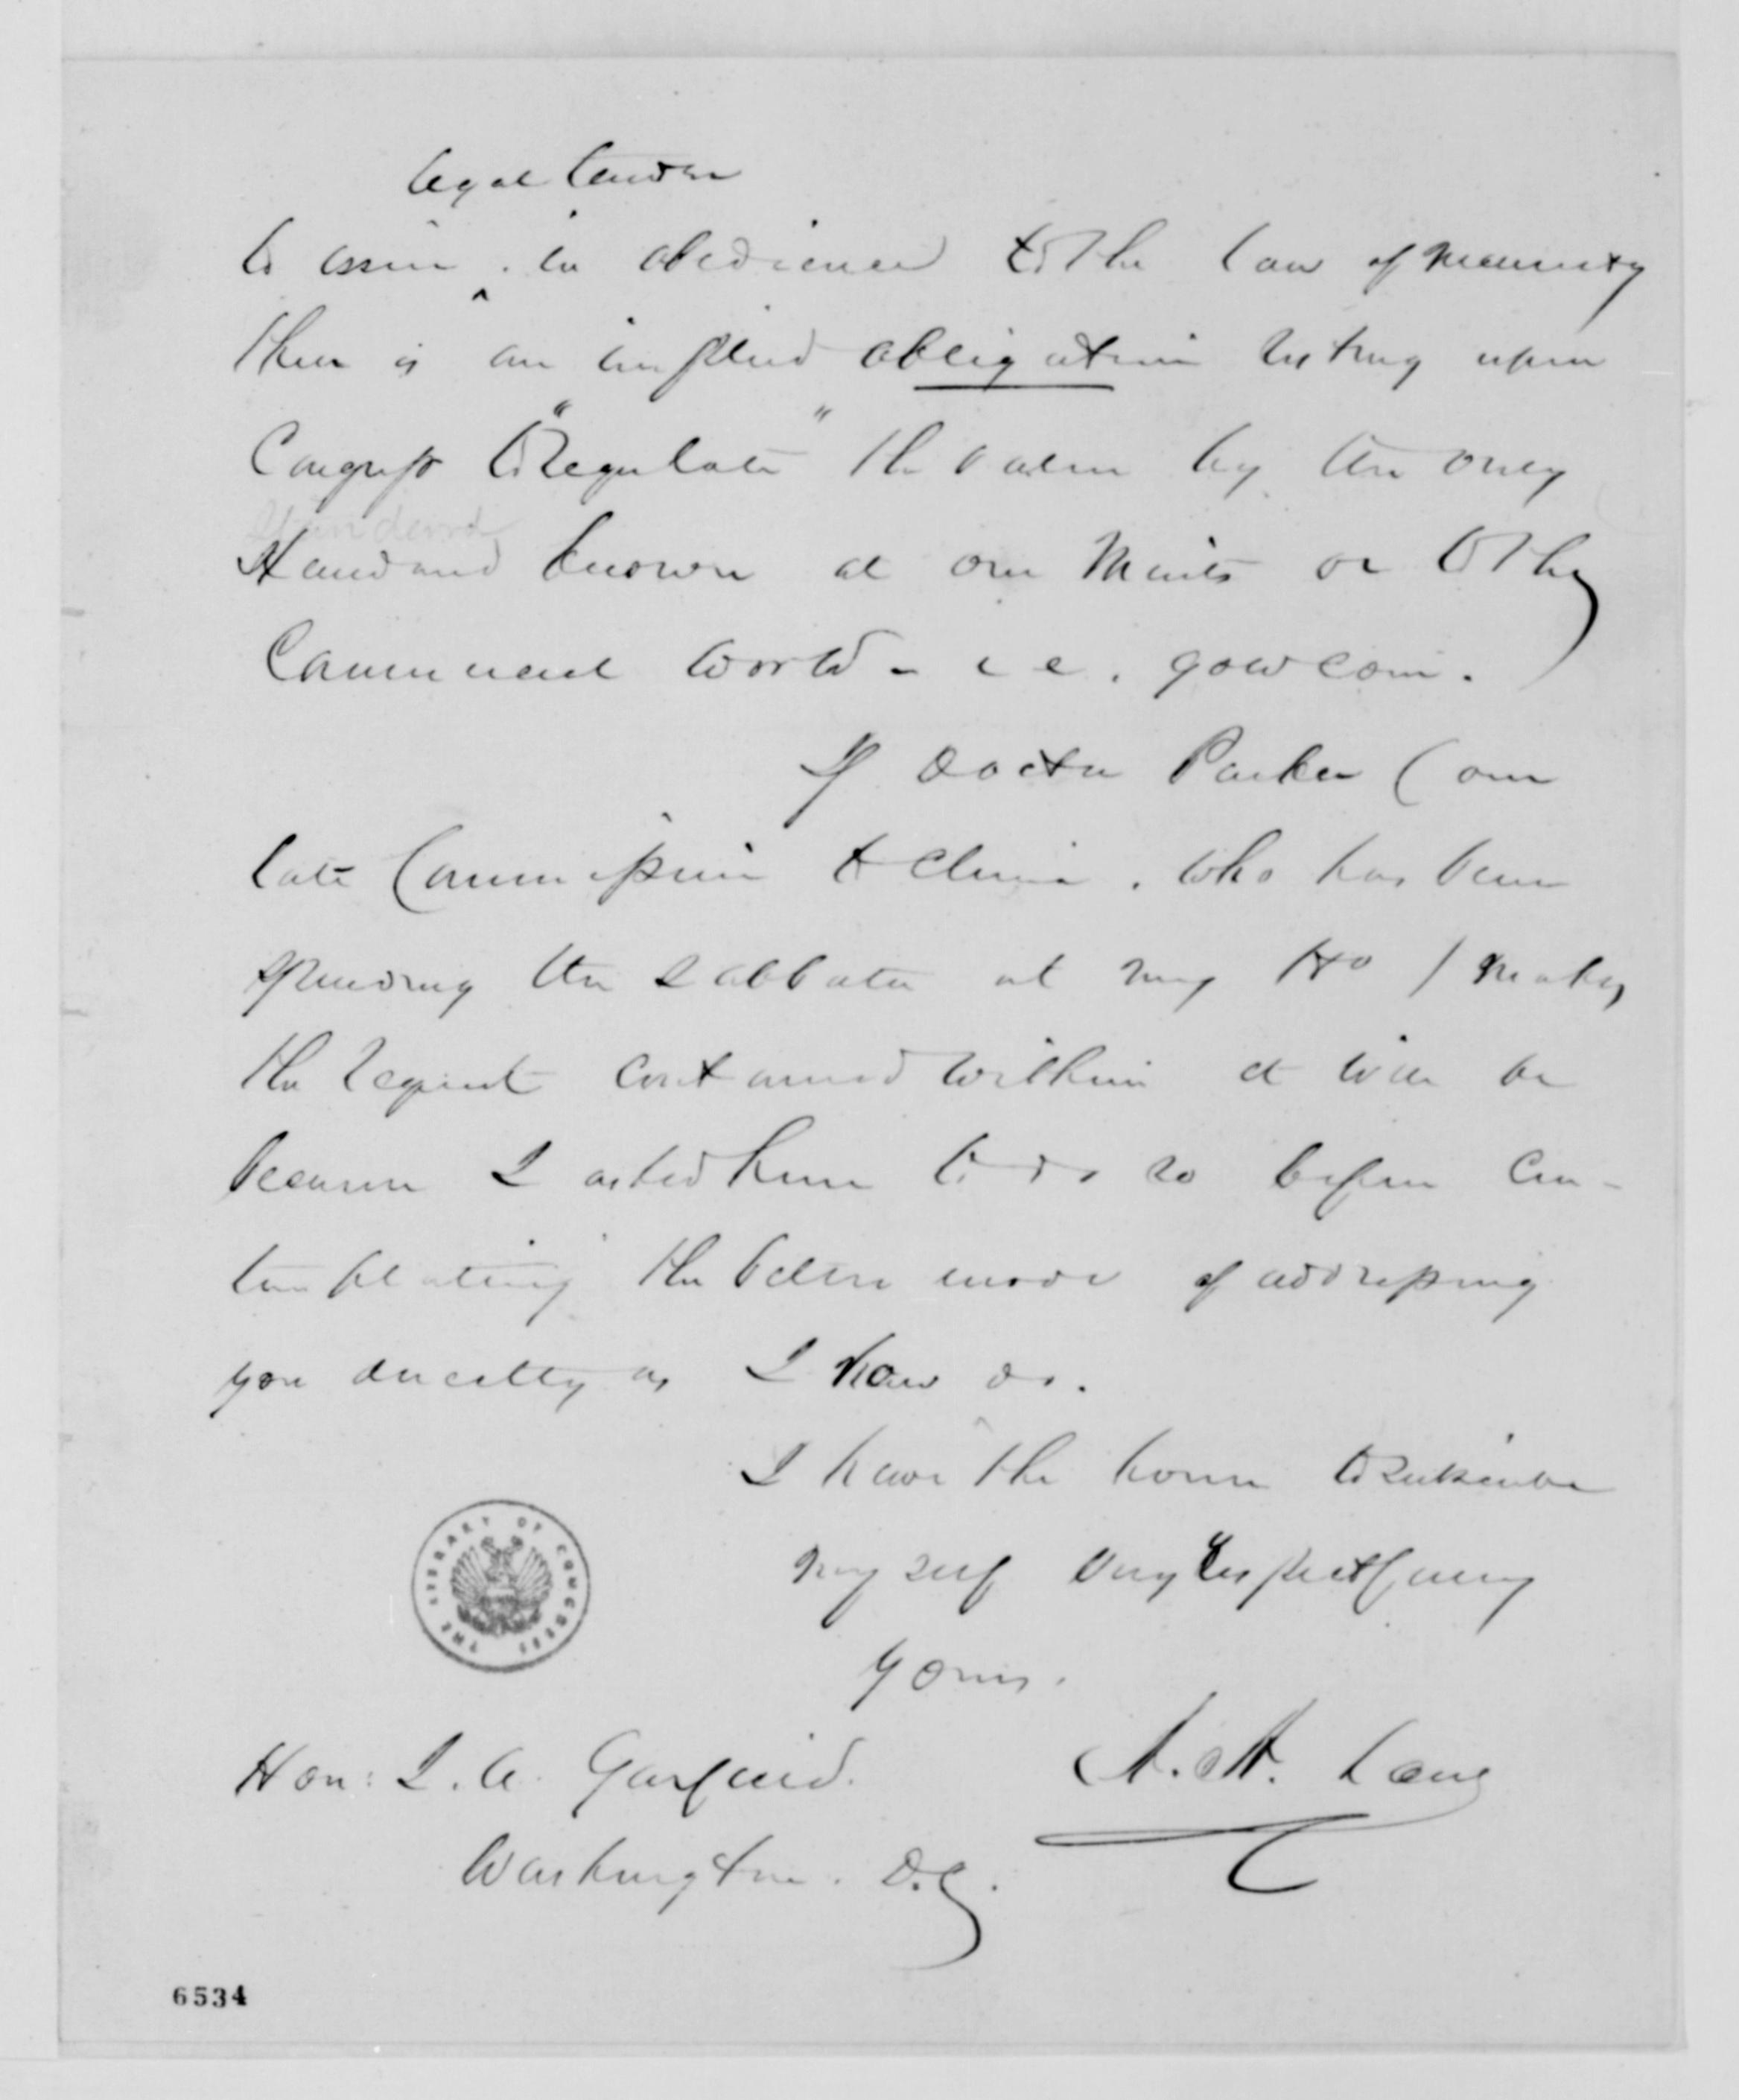 legal tender
to issue, in obedience to the law of necessity
there is an implied obligation resting upon
Congress to "Regulate" the value by the only
standard
Standard known at our Mints or to the
Commercial world - i.e. gold coin.
If Doctor Parker (our
late Commissioner to China, who has been
spending the Sabbath at my Ho) makes
the request contained within it will be
because I asked him to do so before con-
templating the bolder mode of addressing
you directly as I now do.
I have the honor to subscribe
myself very respectfully
yours.
Hon: J. A. Garfield.
Washington. D.C.
THE LIBRARY OF CONGRESS
6534